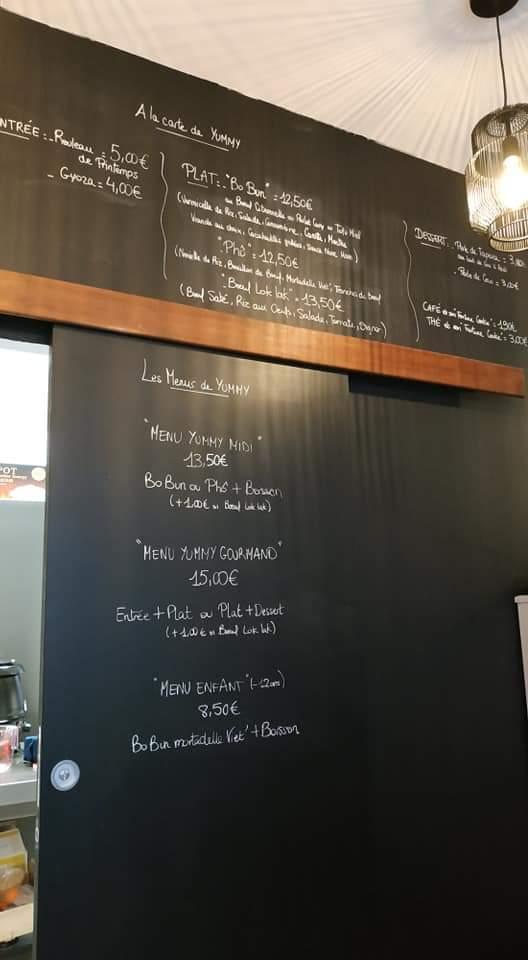 A la carte de YUMMY
NTRÉE : - Rouleau = 5,00€
de Printemps
- Gyoza = 4,00€
PLAT : - "Bo Bun" = 12,50€
ou Boeuf Citronnelle ou Poulet Curry ou Tofu
(Vermicelle de Riz, Salade, Concombre, Carotte, Menthe
Viande au choix, Cacahuètes grillées, Sauce Nuoc Mam)
"Phô" = 12,50€
(Nouille de Riz, Bouillon de Boeuf, Mortadelle Viet', Tranches de Boeuf
"Boeuf Lok lak" = 13,50€
(Boeuf Saté, Riz aux Oeufs, Salade, Tomate, Oignon)
DESSERT : Perle de Tapioca = 3,00
au lait de Coco &
Perle de Coco = 3,00€
CAFÉ et son Fortune Cookie = 1,90€
THÉ et son Fortune Cookie = 3,00€
Les Menus de YUMMY
"MENU YUMMY MIDI"
13,50€
Bo Bun ou Phô + Boisson
(+1,00€ si Boeuf Lok lak)
"MENU YUMMY GOURMAND"
15,00€
Entrée + Plat ou Plat + Dessert
(+1,00€ si Boeuf Lok lak)
"MENU ENFANT" (-12ans)
8,50€
Bo Bun mortadelle Viet' + Boisson
POT